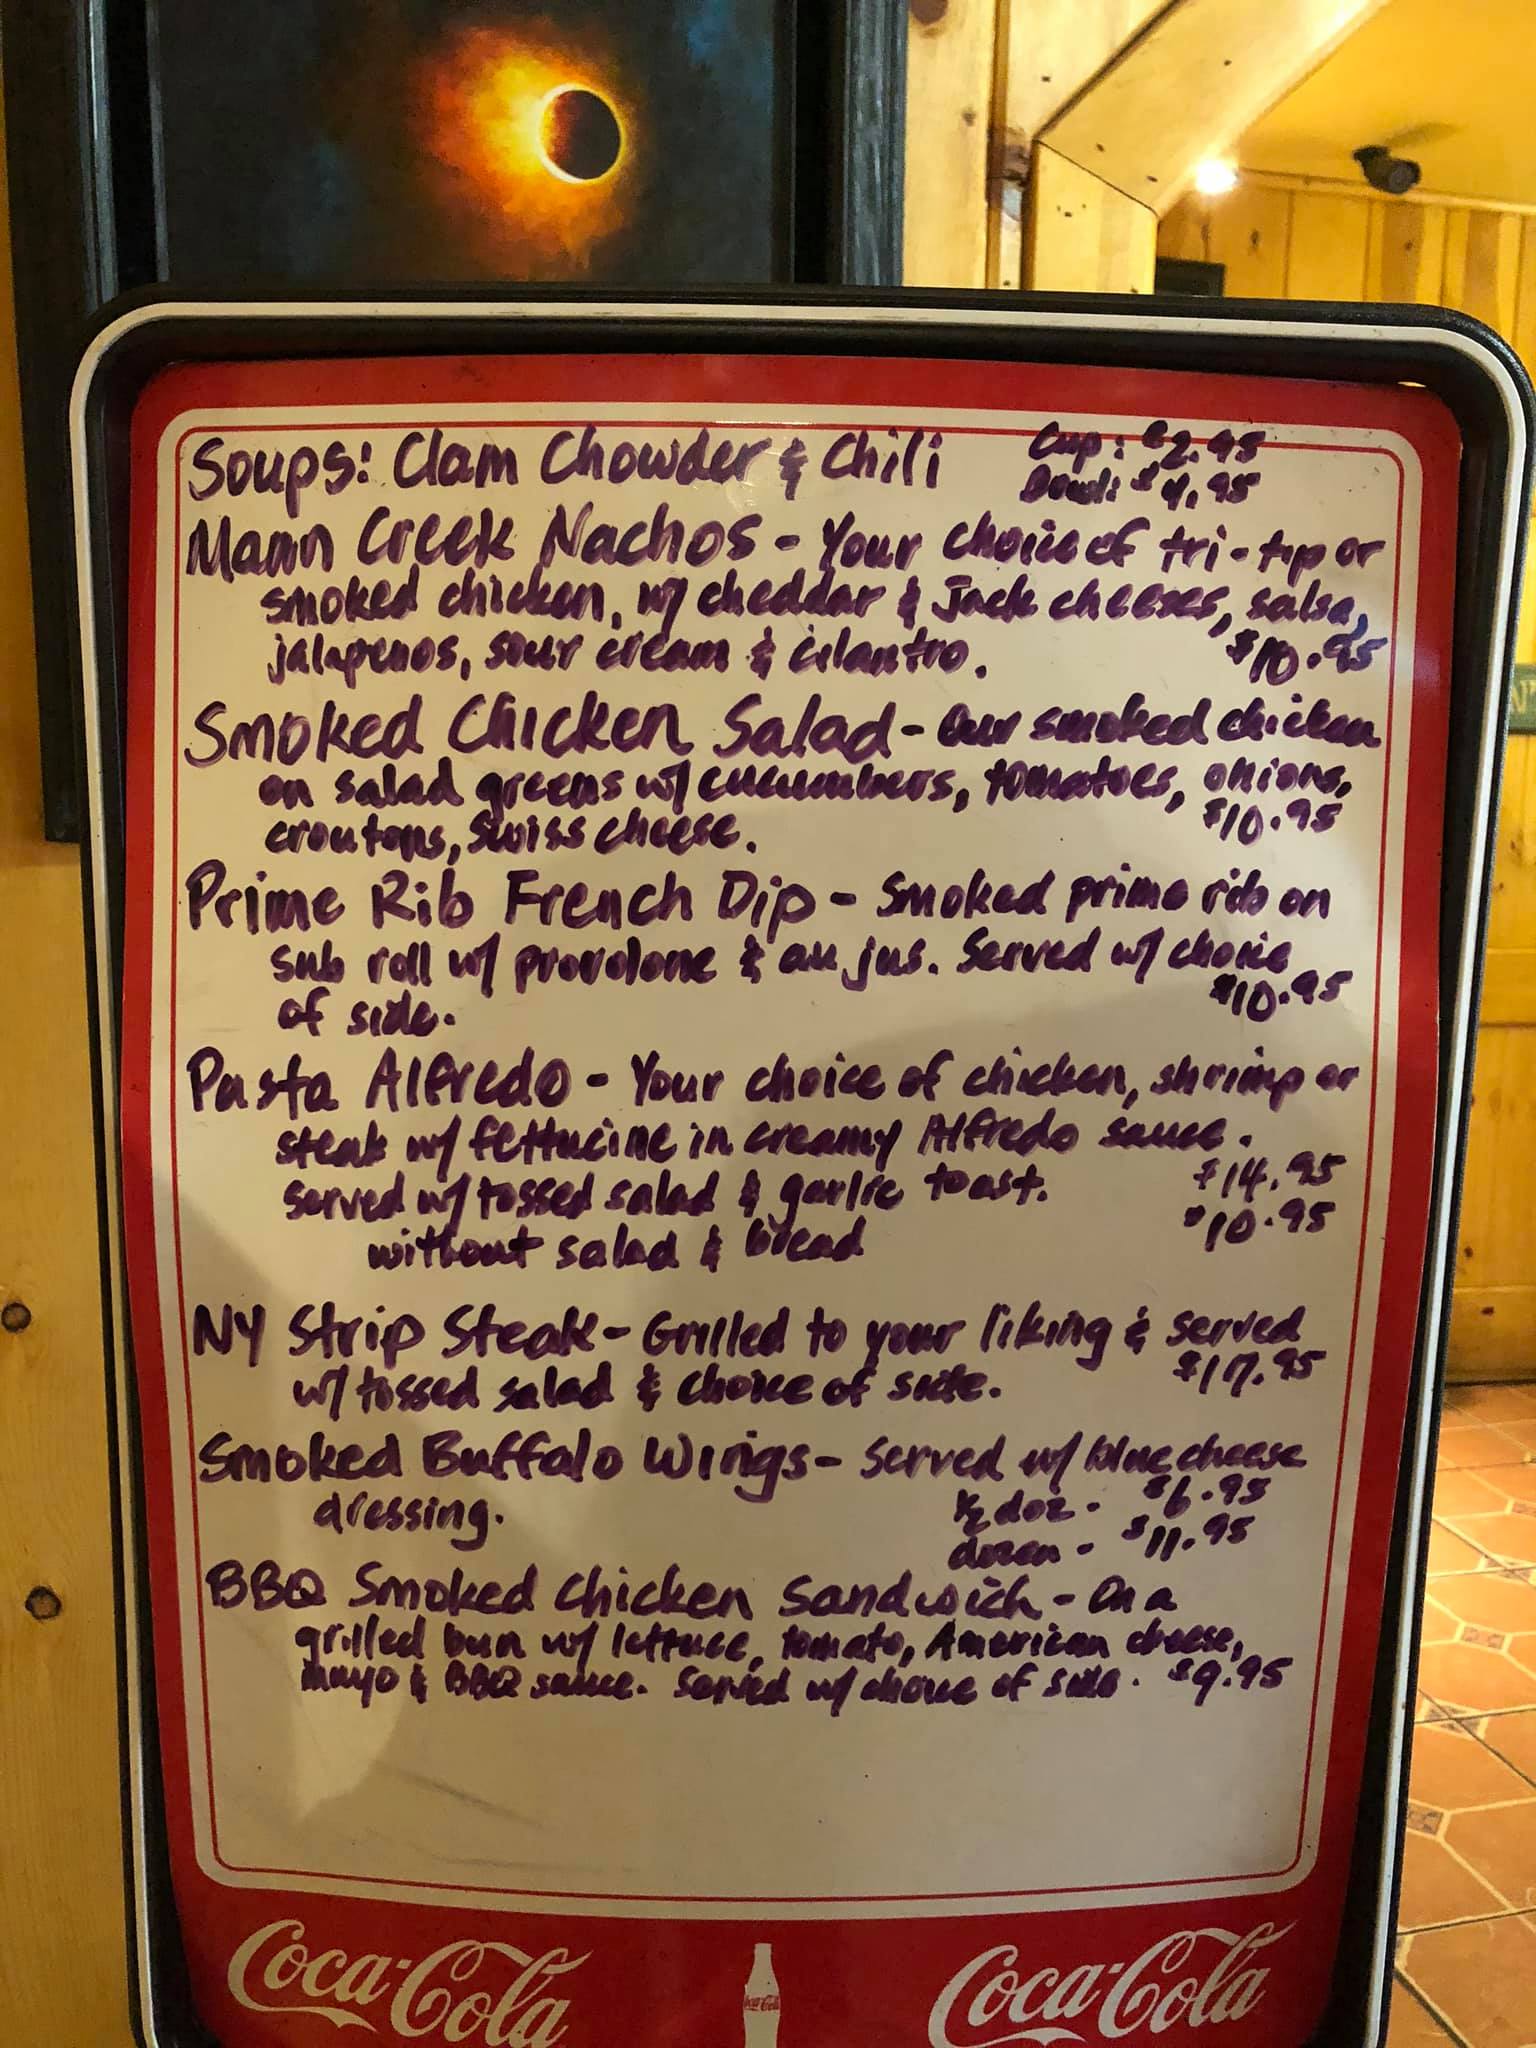 Soups: Clam Chowder & Chili Cup: $2.95
Bowl: $4.95
Mann Creek Nachos - Your choice of tri-tip or
smoked chicken, w/ cheddar & Jack cheeses, salsa,
jalapenos, sour cream & cilantro. $10.95
Smoked Chicken Salad - Our smoked chicken
on salad greens w/ cucumbers, tomatoes, onions,
croutons, swiss cheese. $10.95
Prime Rib French Dip - Smoked prime rib on
sub roll w/ provolone & au jus. Served w/ choice
of side. $10.95
Pasta Alfredo - Your choice of chicken, shrimp or
steak w/ fettucine in creamy Alfredo sauce.
served w/ tossed salad & garlic toast. $14.95
without salad & bread $10.95
NY Strip Steak - Grilled to your liking & served
w/ tossed salad & choice of side. $17.95
Smoked Buffalo Wings - Served w/ blue cheese
dressing. ½ doz - $6.95
dozen - $11.95
BBQ Smoked Chicken Sandwich - On a
grilled bun w/ lettuce, tomato, American cheese,
mayo & BBQ sauce. Served w/ choice of side. $9.95
Coca-Cola Coca-Cola Coca-Cola